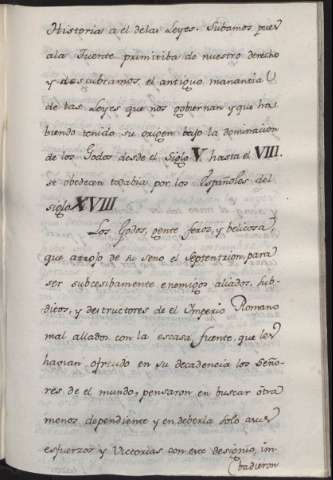 Historias a el de las Leyes. Subamos pues
ala Fuente primitiba de nuestro derecho
y descubramos el antiguo manantial
de las Leyes que nos gobiernan y que ha-
biendo tenido su origen bajo la dominacion
de los Godos desde el Siglo V. hasta el VIII.
se obedecen todabia por los Españoles del
siglo XVIII
Los Godos, gente feros, y belicosa
que arrojo de su seno el Septentrion para
ser subcesibamente enemigos aliados, sub-
ditos, y destructores de el Imperio Romano
mal allados con la escasa fuente, que les
havian ofrecido en su decadencia los Seño-
res de el mundo, pensaron en buscar otra
menos dependiente y en deberla solo a sus
esfuerzos y Victorias con este designio, in-
badieron